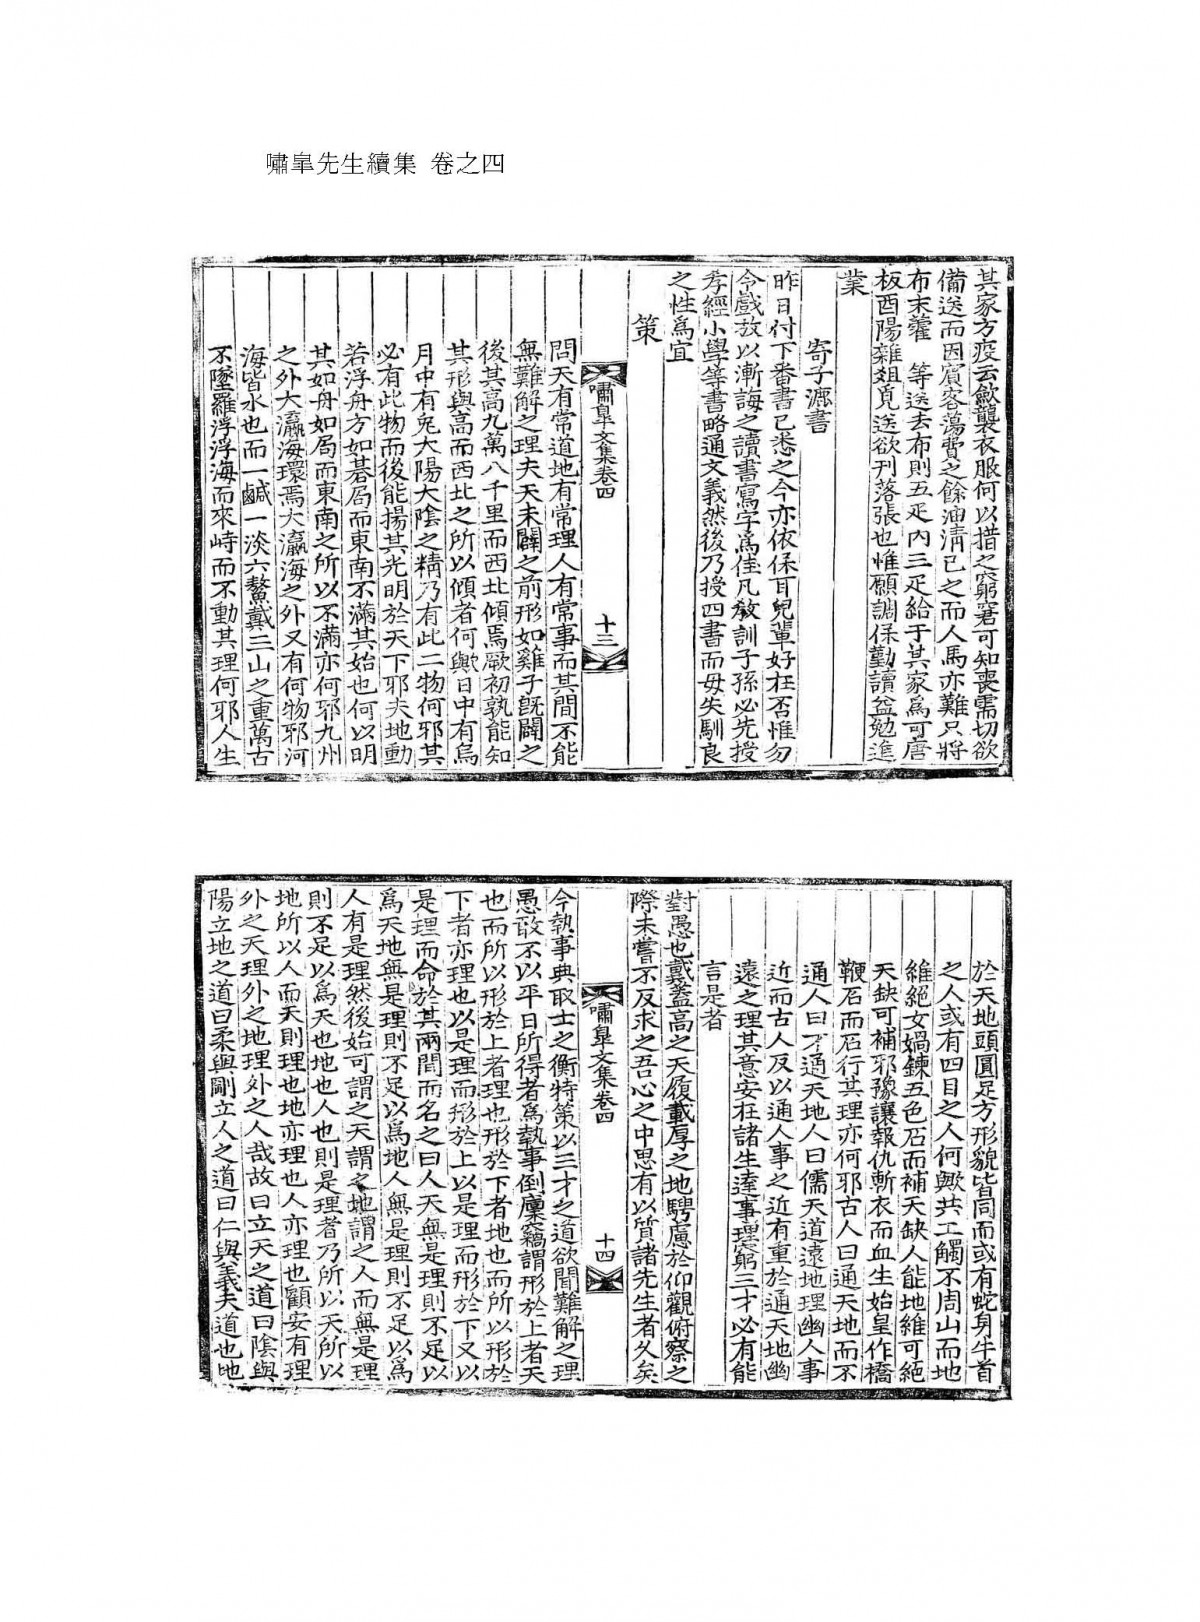 嘯皐先生續集 卷之四
其家方疫云斂襲衣服何以措之窮窘可知喪需切欲
備送而因賓客蕩費之餘油淸已乏而人馬亦難只將
布末藿 等送去布則五疋內三疋給于其家爲可唐
板酉陽雜俎覓送欲刊落張也惟願調保勤讀益勉進
業
寄子漉書
昨日付下番書已悉之今亦依保耳兒輩好在否惟勿
令戲放以漸誨之讀書寫字爲佳凡敎訓子孫必先授
孝經小學等書略通文義然後乃授四書而毋失馴良
之性爲宜
策
嘯皐文集卷四 十三
問天有常道地有常理人有常事而其間不能
無難解之理夫天未闢之前形如雞子旣闢之
後其高九萬八千里而西北傾焉厥初孰能知
其形與高而西北之所以傾者何歟日中有烏
月中有兔大陽大陰之精乃有此二物何邪其
必有此物而後能揚其光明於天下邪夫地動
若浮舟方如碁局而東南不滿其始也何以明
其如舟如局而東南之所以不滿亦何邪九州
之外大瀛海環焉大瀛海之外又有何物邪河
海皆水也而一鹹一淡六鰲戴三山之重萬古
不墜羅浮浮海而來峙而不動其理何邪人生
於天地頭圓足方形貌皆同而或有蛇身牛首
之人或有四目之人何歟共工觸不周山而地
維絕女媧鍊五色石而補天缺人能地維可絕
天缺可補邪豫讓報仇斬衣而血生始皇作橋
鞭石而石行其理亦何邪古人曰通天地而不
通人曰才通天地人曰儒天道遠地理幽人事
近而古人反以通人事之近有重於通天地幽
遠之理其意安在諸生達事理窮三才必有能
言是者
對愚也戴蓋高之天履載厚之地騁慮於仰觀俯察之
際未嘗不反求之吾心之中思有以質諸先生者久矣
嘯皐文集卷四 十四
今執事典取士之衡特策以三才之道欲聞難解之理
愚敢不以平日所得者爲執事倒廩竊謂形於上者天
也而所以形於上者理也形於下者地也而所以形於
下者亦理也以是理而形於上以是理而形於下又以
是理而命於其兩間而名之曰人天無是理則不足以
爲天地無是理則不足以爲地人無是理則不足以爲
人有是理然後始可謂之天謂之地謂之人而無是理
則不足以爲天也地也人也則是理者乃所以天所以
地所以人而天則理也地亦理也人亦理也顧安有理
外之天理外之地理外之人哉故曰立天之道曰陰與
陽立地之道曰柔與剛立人之道曰仁與義夫道也地